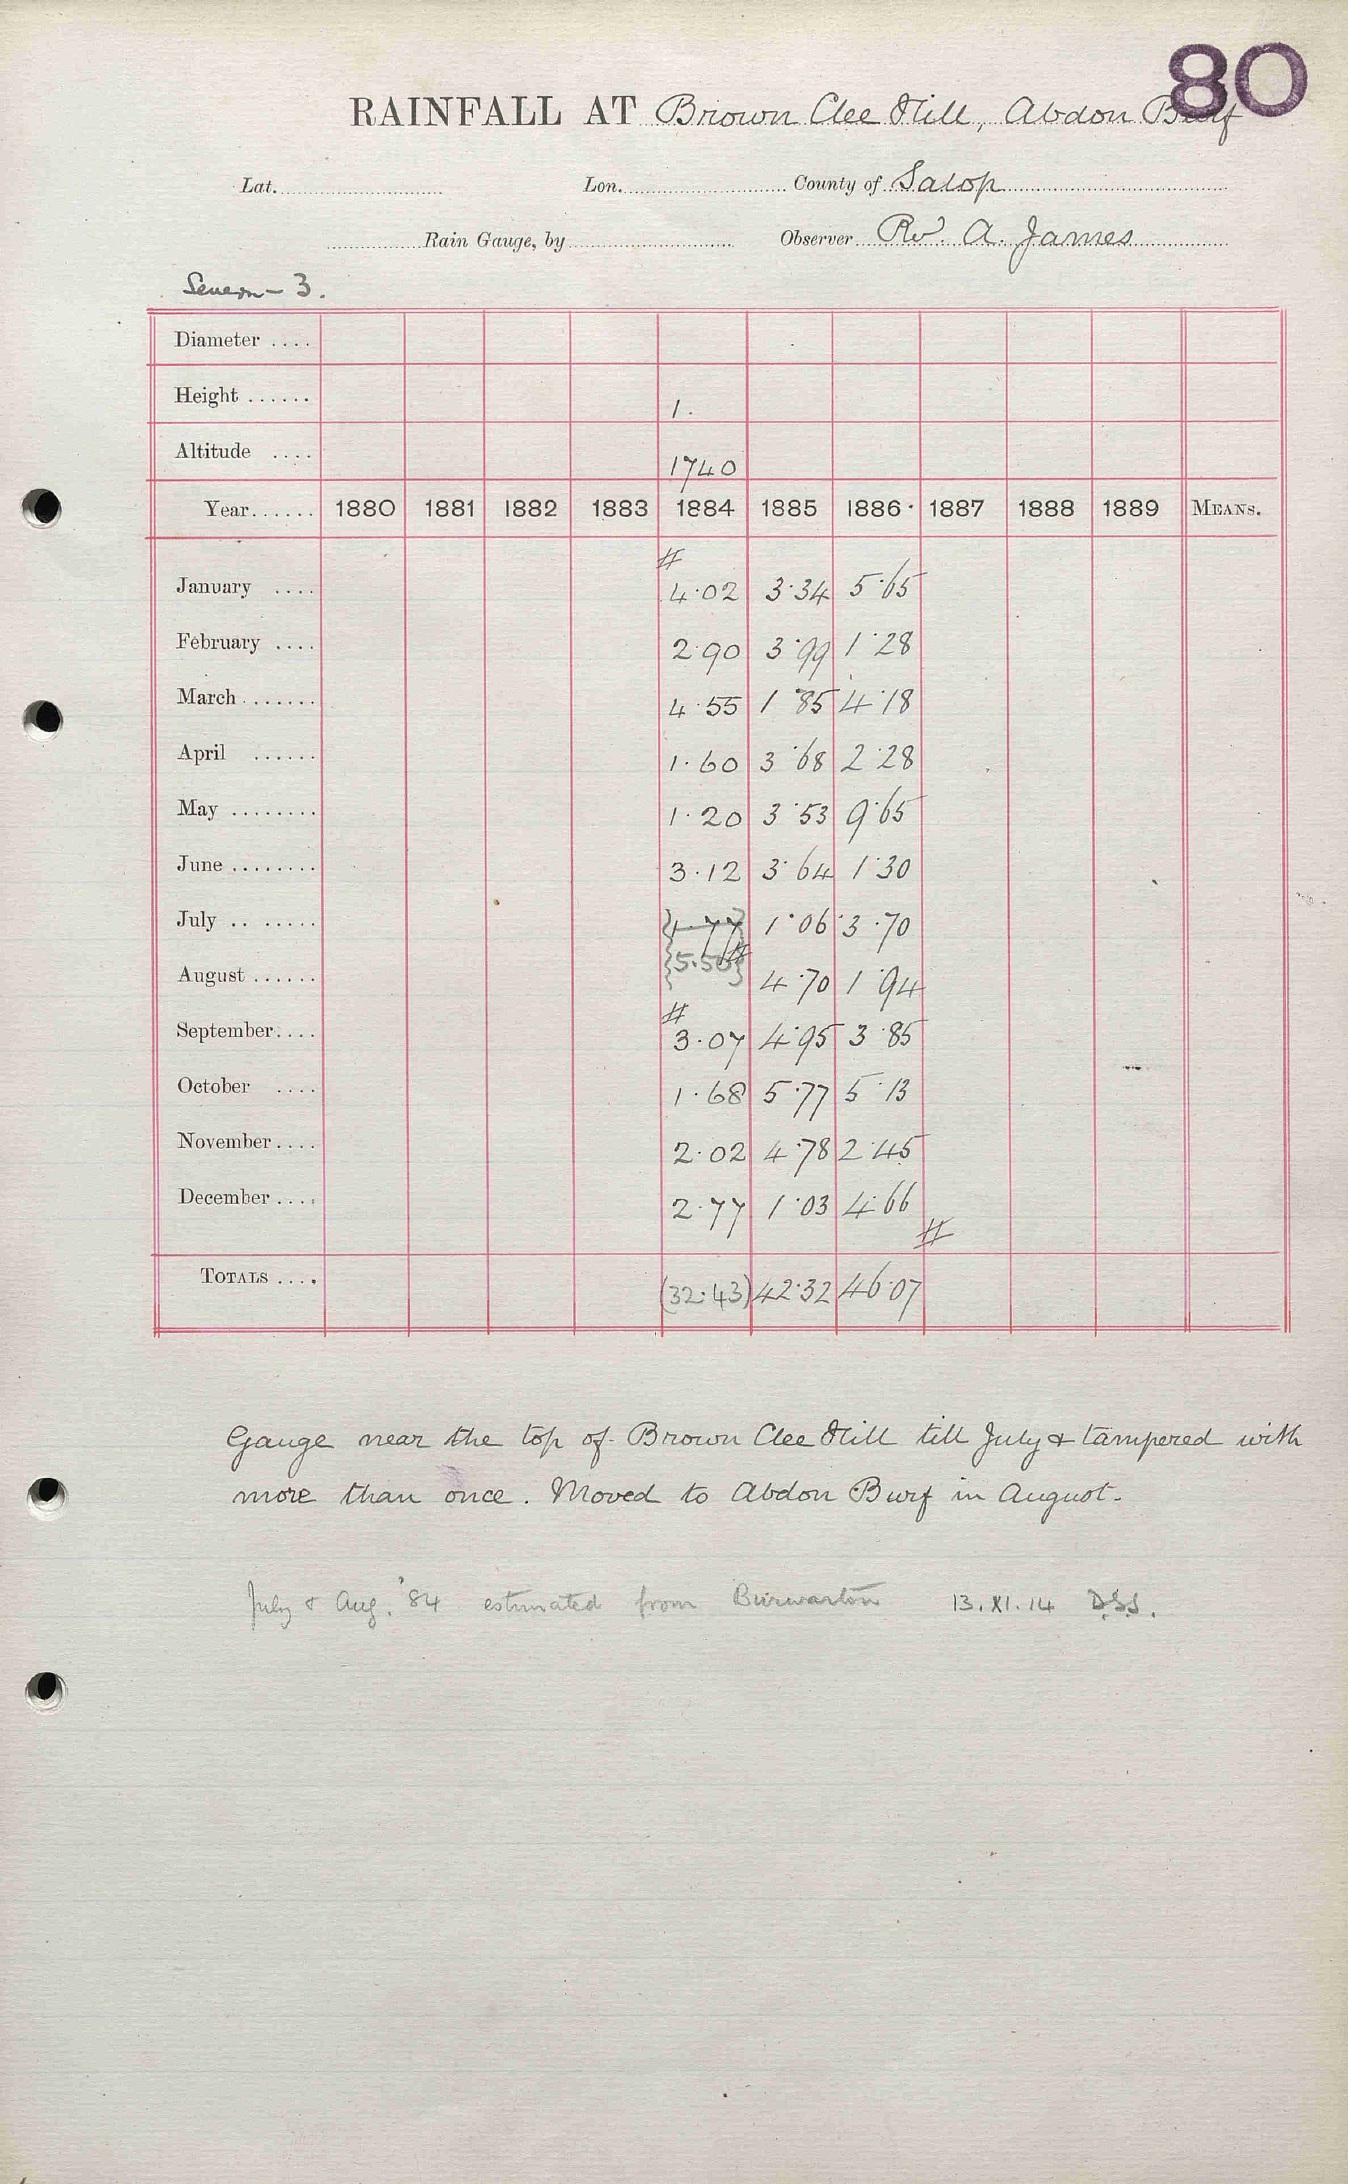 80
RAINFALL AT Brown Clee Hill, Abdon Burf
Lat. Lon. County of Salop
Rain Gauge, by Observer Rev. A. James
Severn - 3.
Diameter ....
Height ...... 1.
Altitude .... 1740
Year...... 1880 1881 1882 1883 1884 1885 1886 1887 1888 1889 MEANS.
#
January .... 4.02 3.34 5.65
February .... 2.90 3.99 1.28
March ....... 4.55 1.85 4.18
April ...... 1.60 3.68 2.28
May ........ 1.20 3.53 9.65
June ........ 3.12 3.64 1.30
July .. ...... 1.77 1.06 3.70
5.50 #
August ...... 4.70 1.94
#
September.... 3.07 4.95 3.85
October .... 1.68 5.77 5.13
November.... 2.02 4.78 2.45
December.... 2.77 1.03 4.66
#
TOTALS .... (32.43) 42.32 46.07
Gauge near the top of Brown Clee Hill till July & tampered with
more than once. Moved to Abdon Burf in August.
July & Aug. '84 estimated from Burwarton 13.XI.14 D.S.S.